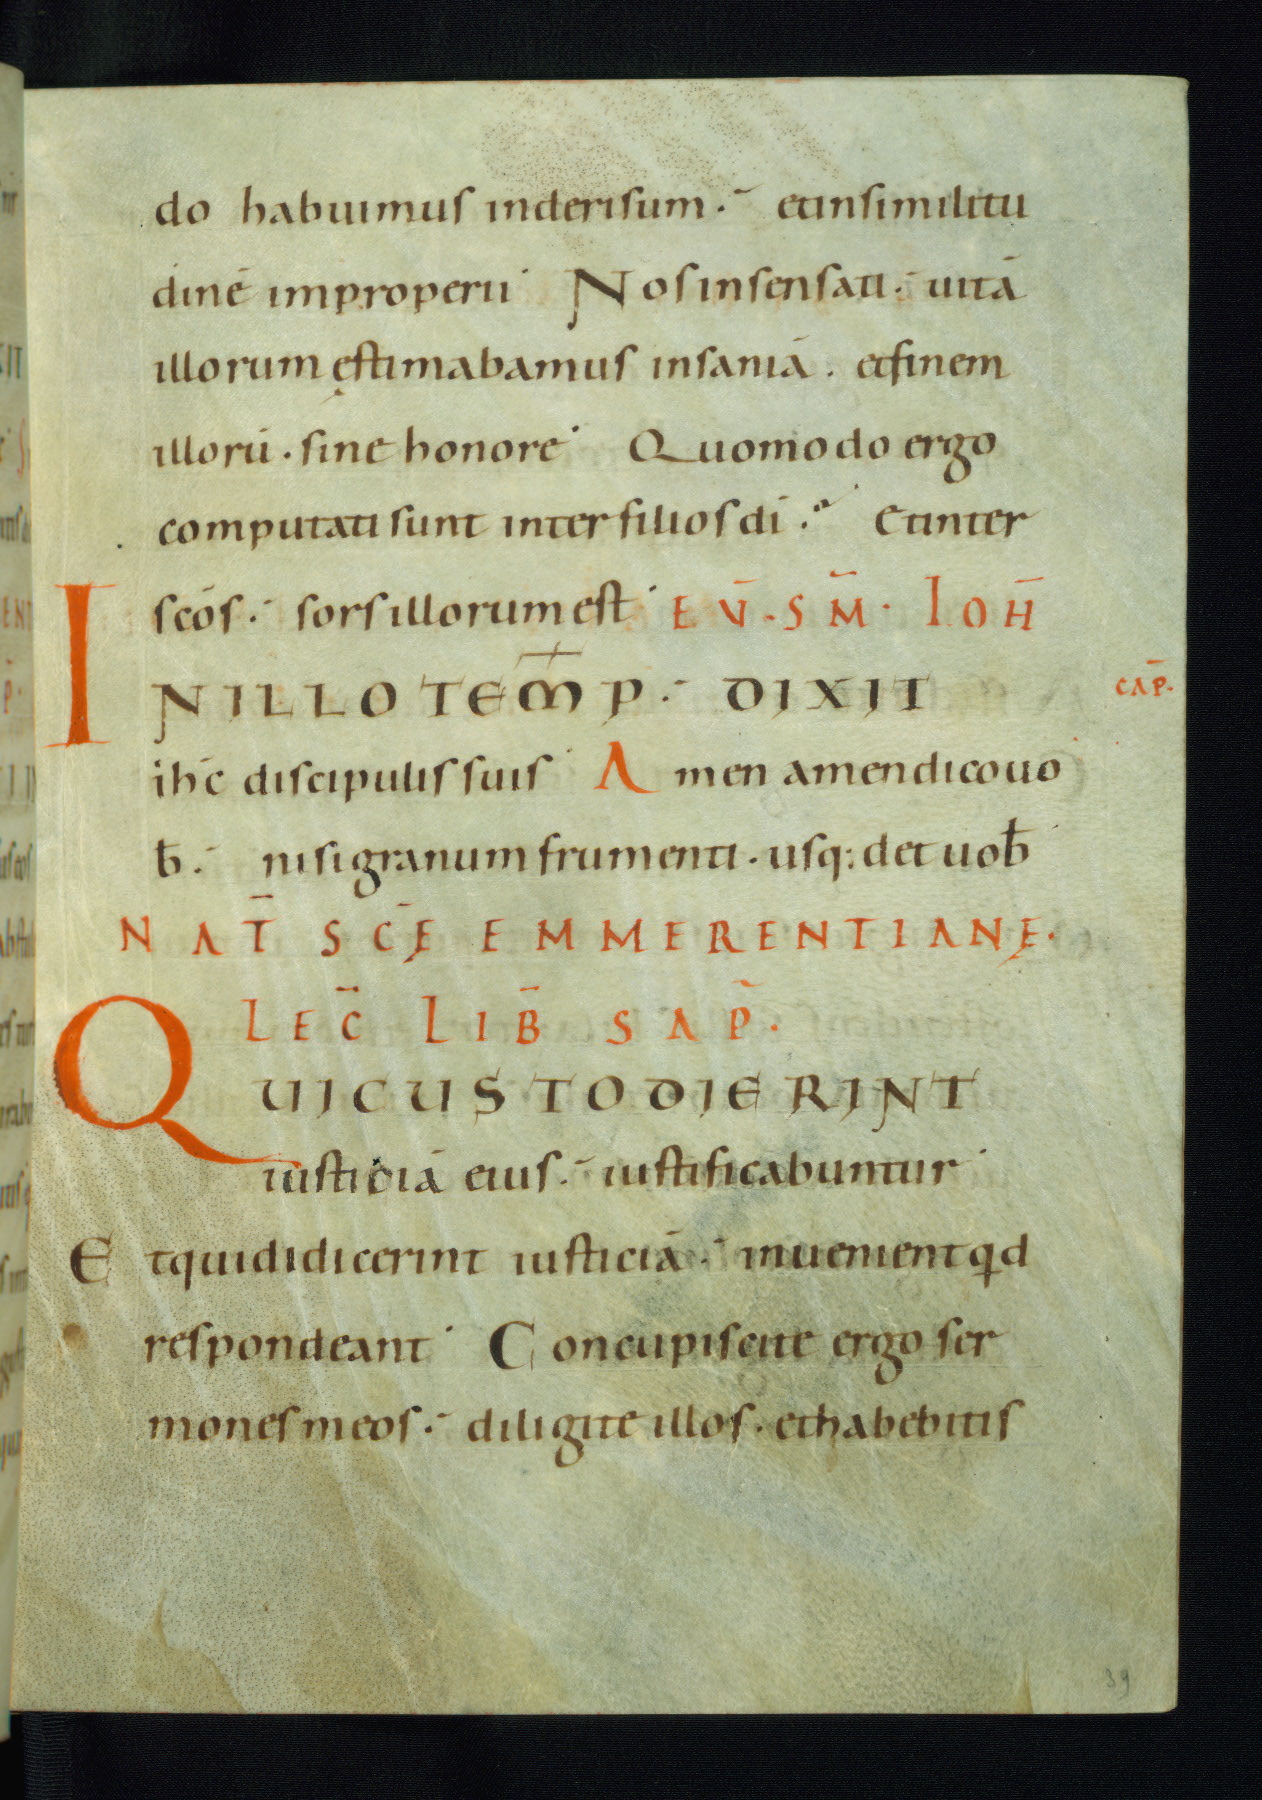 do habuimus inderisum. etinsimilitu
dinē improperii Nosinsensati. uitā
illorum ęstimabamus insaniā. etfinem
illorū. sine honore Quomodo ergo
computatisunt interfiliosdī. Etinter
scōs. sorsillorumest EV̄. SM̄. IOH̄
INILLOTEM̄P. DIXIT
CAP̄.
ihc̄ discipulissuis Amen amendicouo
b̄. nisigranumfrumenti. usq; det uob̄
NAT̄ SC̄Ę EMMERENTIANĘ.
LEC̄ LIB̄ SAP̄.
QUICUSTODIERINT
iusticiā eius. iustificabuntur
Etquididicerint iusticiā. inuenientqd
respondeant Concupiscite ergo ser
monesmeos. diligite illos. ethabebitis
39